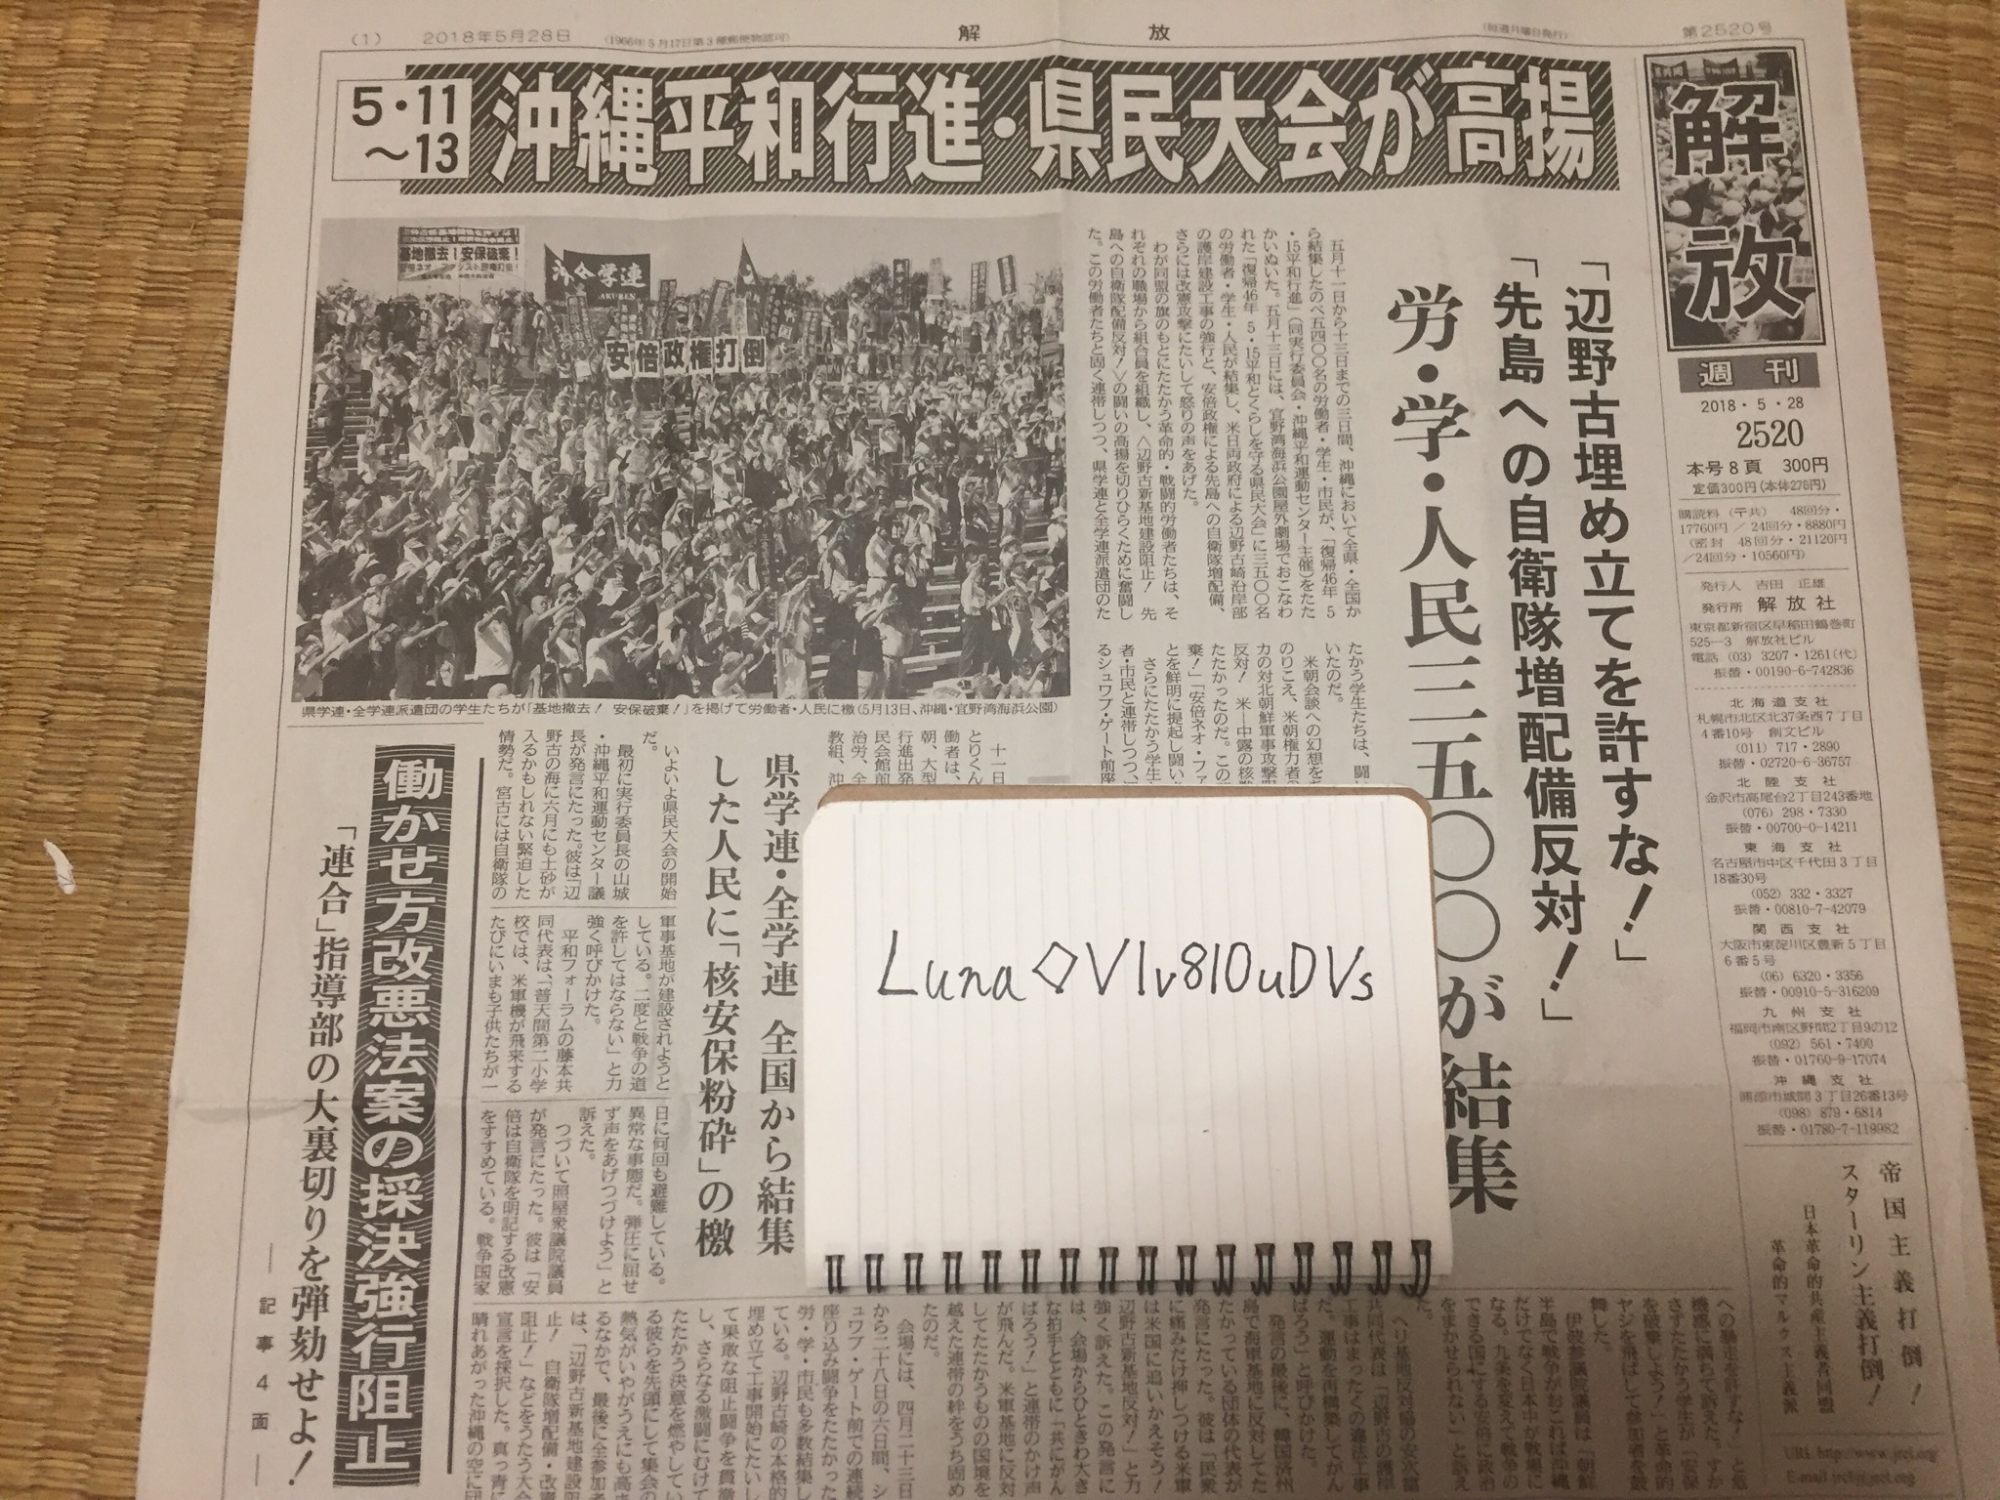 (1) 2018年5月28日 (1966年5月17日第3種郵便物認可) 解放 (毎週月曜日発行) 第2520号
5・11～13
沖縄平和行進・県民大会が高揚
解放
週刊
2018・5・28
2520
本号8頁 300円
定価300円(本体278円)
購読料(〒共) 48回分・
17760円/24回分・8880円
(密封 48回分・21120円
/24回分・10560円)
発行人 吉田 正雄
発行所 解放社
東京都新宿区早稲田鶴巻町
525-3 解放社ビル
電話 (03) 3207・1261(代)
振替・00190-6-742836
北海道支社
札幌市北区北37条西7丁目
4番10号 創文ビル
(011) 717・2890
振替・02720-6-36757
北陸支社
金沢市高尾台2丁目243番地
(076) 298・7330
振替・00700-0-14211
東海支社
名古屋市中区千代田3丁目
18番30号
(052) 332・3327
振替・00810-7-42079
関西支社
大阪市東淀川区豊新5丁目
6番5号
(06) 6320・3356
振替・00910-5-316209
九州支社
福岡市南区野間2丁目9の12
(092) 561・7400
振替・01760-9-17074
沖縄支社
浦添市城間3丁目26番13号
(098) 879・6814
振替・01780-7-119982
帝国主義打倒!
スターリン主義打倒!
日本革命的共産主義者同盟
革命的マルクス主義派
URL http://www.jrcl.org
E-mail jrcl@jrcl.org
「辺野古埋め立てを許すな!」
「先島への自衛隊増配備反対!」
労・学・人民三五〇〇が結集
五月十一日から十三日までの三日間、沖縄において全県・全国か
ら結集したのべ五四〇〇名の労働者・学生・市民が、「復帰46年 5
・15平和行進」(同実行委員会・沖縄平和運動センター主催)をたた
かいぬいた。五月十三日には、宜野湾海浜公園屋外劇場でおこなわ
れた「復帰46年 5・15平和とくらしを守る県民大会」に三五〇〇名
の労働者・学生・人民が結集し、米日両政府による辺野古崎沿岸部
の護岸建設工事の強行と、安倍政権による先島への自衛隊増配備、
さらには改憲攻撃にたいして怒りの声をあげた。
わが同盟の旗のもとにたたかう革命的・戦闘的労働者たちは、そ
れぞれの職場から組合員を組織し、〈辺野古新基地建設阻止! 先
島への自衛隊配備反対!〉の闘いの高揚を切りひらくために奮闘し
た。この労働者たちと固く連帯しつつ、県学連と全学連派遣団のた
たかう学生たちは、闘い
いたのだ。
米朝会談への幻想を
のりこえ、米朝権力者の
カの対北朝鮮軍事攻撃
反対! 米―中露の核戦
たたかったのだ。この
棄!」「安倍ネオ・ファ
とを鮮明に提起し闘い
さらにたたかう学生
者・市民と連帯しつつ、
るシュワブ・ゲート前座
基地撤去!安保破棄!
沖全学連
安倍政権打倒
県学連・全学連派遣団の学生たちが「基地撤去! 安保破棄!」を掲げて労働者・人民に檄(5月13日、沖縄・宜野湾海浜公園)
県学連・全学連 全国から結集
した人民に「核安保粉砕」の檄
十一日
とりくん
働者は、
朝、大型
行進出発
民会館前
治労、全
教組、沖
いよいよ県民大会の開始
だ。
最初に実行委員長の山城
・沖縄平和運動センター議
長が発言にたった。彼は「辺
野古の海に六月にも土砂が
入るかもしれない緊迫した
情勢だ。宮古には自衛隊の
軍事基地が建設されようと
している。二度と戦争の道
を許してはならない」と力
強く呼びかけた。
平和フォーラムの藤本共
同代表は、「普天間第二小学
校では、米軍機が飛来する
たびにいまも子供たちが一
日に何回も避難している。
異常な事態だ。弾圧に屈せ
ず声をあげつづけよう」と
訴えた。
つづいて照屋衆議院議員
が発言にたった。彼は「安
倍は自衛隊を明記する改憲
をすすめている。戦争国家
への暴走を許すな!」と危
機感に満ちて訴えた。すか
さずたたかう学生が「安保
を破棄しよう!」と革命的
ヤジを飛ばして参加者を鼓
舞した。
伊波参議院議員は「朝鮮
半島で戦争がおこれば沖縄
だけでなく日本中が戦場に
なる。九条を変えて戦争の
できる国にする安倍に政治
をまかせられない」と訴え
た。
ヘリ基地反対協の安次富
共同代表は「辺野古の護岸
工事はまったくの違法工事
だ。運動を再構築してがん
ばろう」と呼びかけた。
発言の最後に、韓国済州
島で海軍基地に反対してた
たかっている団体の代表が
発言にたった。彼は「民衆
に痛みだけ押しつける米軍
は米国に追いかえそう!
辺野古新基地反対!」と力
強く訴えた。この発言に
は、会場からひときわ大き
な拍手とともに「共にがん
ばろう!」と連帯のかけ声
が飛んだ。米軍基地に反対
してたたかうものの国境を
越えた連帯の絆をうち固め
たのだ。
会場には、四月二十三日
から二十八日の六日間、シ
ュワブ・ゲート前での連続
座り込み闘争をたたかった
労・学・市民も多数結集し
ている。辺野古崎の本格的
埋め立て工事開始にたいし
て果敢な阻止闘争を貫徹
し、さらなる激闘にむけて
たたかう決意を燃やしてい
る彼らを先頭にして集会の
熱気がいやがうえにも高ま
るなかで、最後に全参加者
は、「辺野古新基地建設阻
止! 自衛隊増配備・改憲
阻止!」などをうたう大会
宣言を採択した。真っ青に
晴れあがった沖縄の空に団
働かせ方改悪法案の採決強行阻止
「連合」指導部の大裏切りを弾劾せよ!
―記事4面―
Luna◇V1v810uDVs